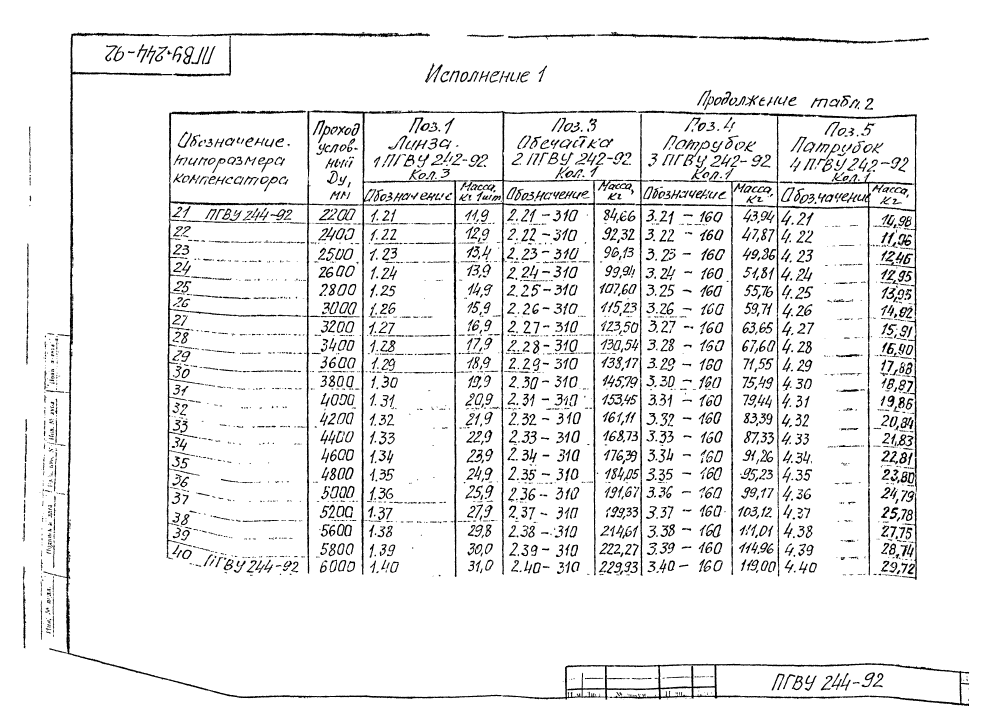 ПГВУ·244-92
Исполнение 1
Продолжение табл. 2
Обозначение типоразмера компенсатора | Проход условный Ду, мм | Поз. 1 Линза 1 ПГВУ 242-92 Кол. 3 | Поз. 3 Обечайка 2 ПГВУ 242-92 Кол. 1 | Поз. 4 Патрубок 3 ПГВУ 242-92 Кол. 1 | Поз. 5 Патрубок 4 ПГВУ 242-92 Кол. 1
Обозначение | Масса, кг 1шт | Обозначение | Масса, кг | Обозначение | Масса, кг | Обозначение | Масса, кг
21 ПГВУ 244-92 2200 1.21 11,9 2.21-310 84,66 3.21-160 43,94 4.21 10,98
22 2400 1.22 12,9 2.22-310 92,32 3.22-160 47,87 4.22 11,96
23 2500 1.23 13,4 2.23-310 96,13 3.23-160 49,86 4.23 12,46
24 2600 1.24 13,9 2.24-310 99,94 3.24-160 51,81 4.24 12,95
25 2800 1.25 14,9 2.25-310 107,60 3.25-160 55,76 4.25 13,93
26 3000 1.26 15,9 2.26-310 115,23 3.26-160 59,71 4.26 14,92
27 3200 1.27 16,9 2.27-310 123,50 3.27-160 63,65 4.27 15,91
28 3400 1.28 17,9 2.28-310 130,54 3.28-160 67,60 4.28 16,90
29 3600 1.29 18,9 2.29-310 138,17 3.29-160 71,55 4.29 17,88
30 3800 1.30 19,9 2.30-310 145,79 3.30-160 75,49 4.30 18,87
31 4000 1.31 20,9 2.31-310 153,45 3.31-160 79,44 4.31 19,86
32 4200 1.32 21,9 2.32-310 161,11 3.32-160 83,39 4.32 20,84
33 4400 1.33 22,9 2.33-310 168,73 3.33-160 87,33 4.33 21,83
34 4600 1.34 23,9 2.34-310 176,39 3.34-160 91,26 4.34 22,81
35 4800 1.35 24,9 2.35-310 184,05 3.35-160 95,23 4.35 23,80
36 5000 1.36 25,9 2.36-310 191,67 3.36-160 99,17 4.36 24,79
37 5200 1.37 27,9 2.37-310 199,33 3.37-160 103,12 4.37 25,78
38 5600 1.38 29,8 2.38-310 214,61 3.38-160 111,01 4.38 27,75
39 5800 1.39 30,0 2.39-310 222,27 3.39-160 114,96 4.39 28,74
40 ПГВУ 244-92 6000 1.40 31,0 2.40-310 229,93 3.40-160 119,00 4.40 29,72
ПГВУ 244-92